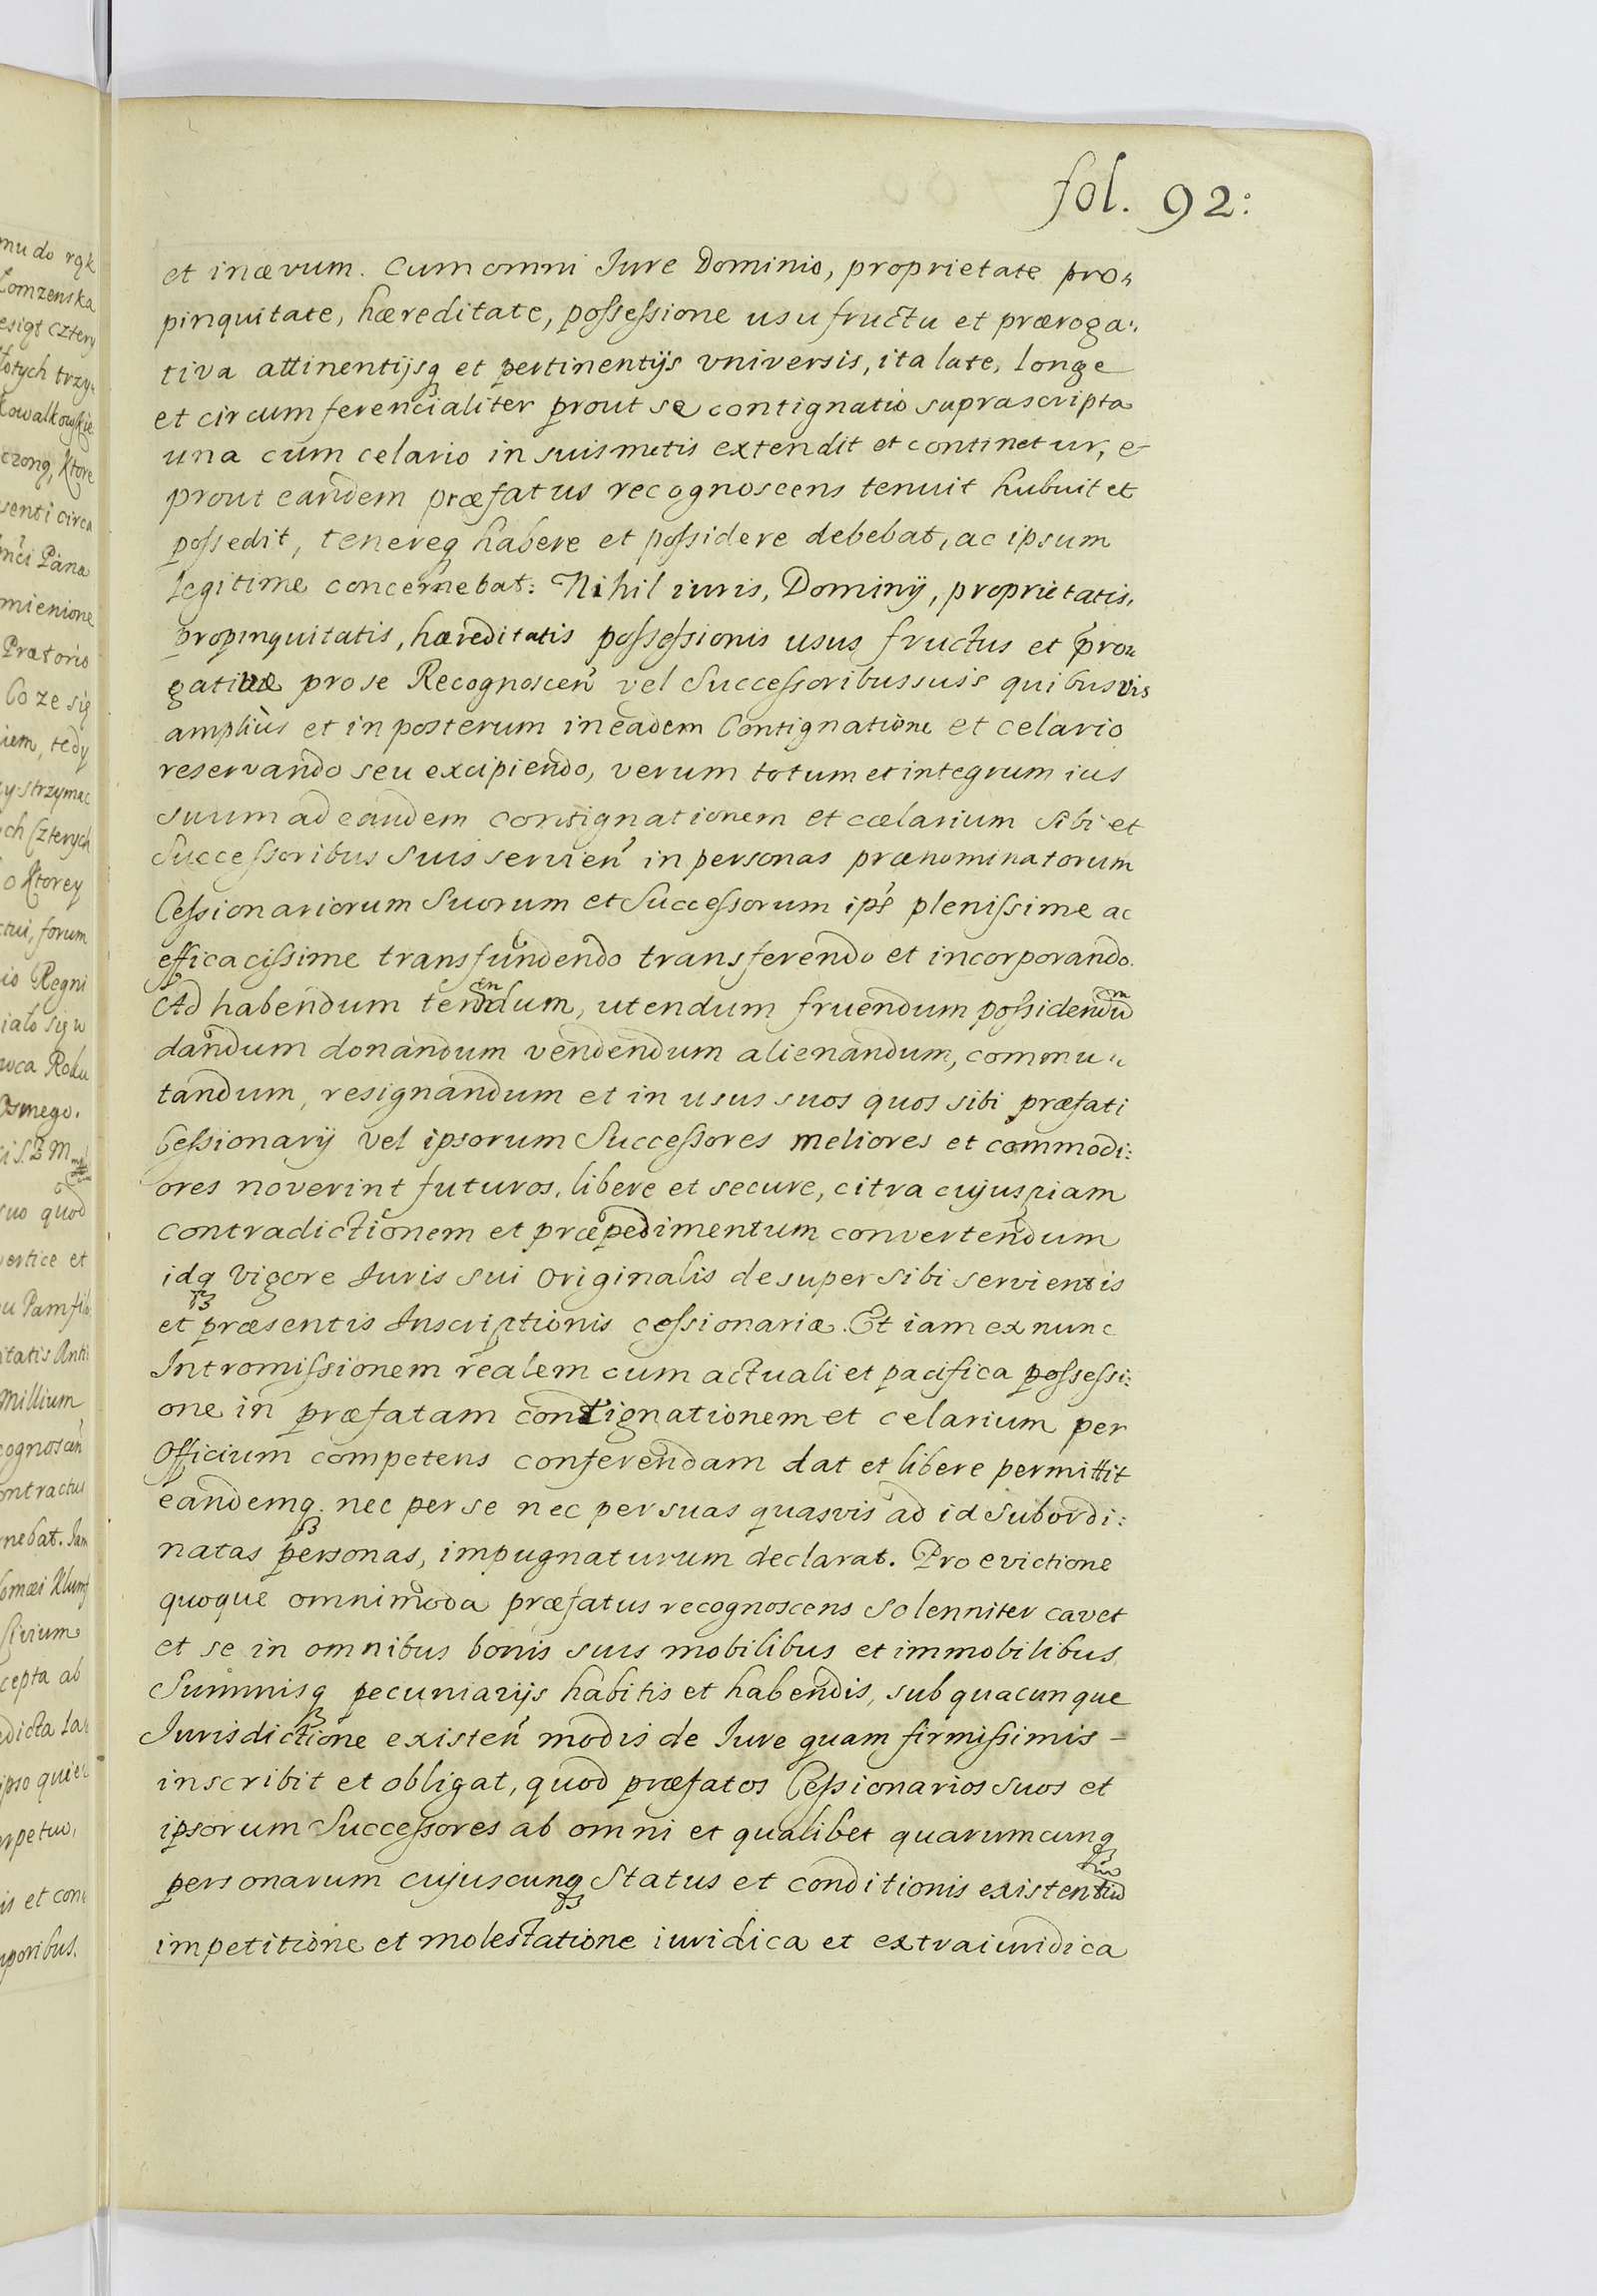 fol. 92:
et in ævum. Cum omni Iure Dominio, proprietate pro„
pinquitate, hæreditate, poſseſsione usufructu et præroga:,
tiva attinentijsq3 et pertinentijs vniversis, ita late, longe
et circumferencialiter prout se contignatio suprascripta
una cum celario in suis metis extendit et continetur, et
prout eandem præfatus recognoscens tenuit habuit et
poſsedit, tenereq3 habere et poſsidere debebat, ac ipsum
legitime concernebat: Nihil iuris, Dominij, proprietatis,
propinquitatis, hæreditatis poſseſsionis usus fructus et præro„
gativæ pro se Recognoscen̄ vel Succeſsoribus suis quibusvis
ampliùs et in posterum in eadem Contignatione et celario
reservando seu excipiendo, verum totum et integrum ius
suum ad eandem contignationem et cœlarium sibi et
Succeſsoribus Suis servien̄ in personas prænominatorum
Ceſsionariorum Suorum et Succeſsorum ips̄ pleniſsime ac
efficaciſsime transfundendo transferendo et incorporando.
Ad habendum tenendum, utendum fruendum poſsidendum
dandum donandum vendendum alienandum, commu„
tandum, resignandum et in usus suos quos sibi præfati
Ceſsionarij vel ipsorum Succeſsores meliores et commodi:
ores noverint futuros, libere et secure, citra cujuspiam
contradictionem et præpedimentum convertendum
idq3 vigore Iuris sui Originalis desuper sibi servientis
et præsentis Inscriptionis ceſsionariæ. Et iam ex nunc
Intromiſsionem realem cum actuali et pacifica poſseſsi:
one in præfatam contignationem et celarium per
Officium competens conferendam dat et libere permittit
eandemq3 nec per se nec per suas quasvis ad id subordi:
natas personas, impugnaturum declarat. Pro evictione
quoque omnimoda præfatus recognoscens solenniter cavet
et se in omnibus bonis suis mobilibus et immobilibus
Summisq3 pecuniarijs habitis et habendis, sub quacunque
Iurisdictione existen̄ modis de Iure quam firmiſsimis -
inscribit et obligat, quod præfatos Ceſsionarios suos et
ipsorum Succeſsores ab omni et qualibet quarumcunq3
personarum cujuscunq3 Status et conditionis existentium
impetitione et molestatione iuridica et extraiuridica